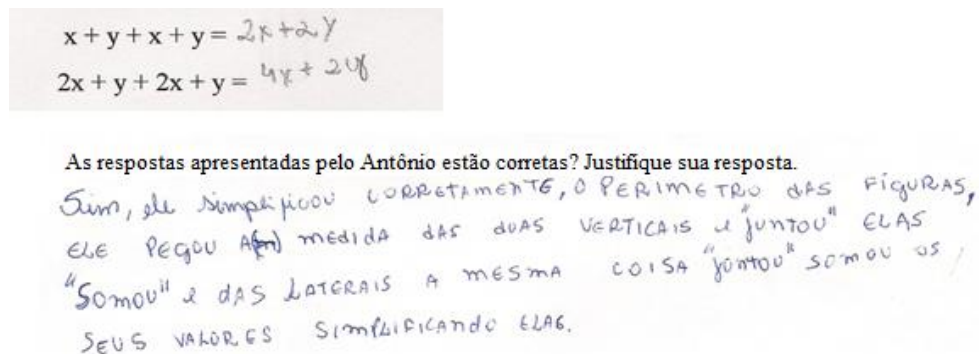 x + y + x + y = 2x + 2y
2x + y + 2x + y = 4x + 2y
As respostas apresentadas pelo Antônio estão corretas? Justifique sua resposta.
Sim, ele simplificou CORRETAMENTE, O PERIMETRO DAS FIGURAS,
ELE PEGOU A MEDIDA DAS DUAS VERTICAIS e "JUNTOU" ELAS
"SOMOU" e DAS LATERAIS A MESMA COISA "JONTOU" SOMOU OS
SEUS VALORES SIMPLIFICANDO ELAS.